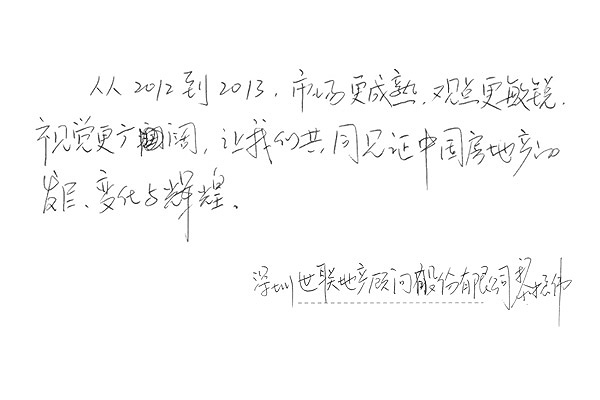 从2012到2013,市场更成熟,观点更敏锐,
视觉更广阔,让我们共同见证中国房地产的
发展、变化与辉煌。
深圳世联地产顾问股份有限公司黎振伟